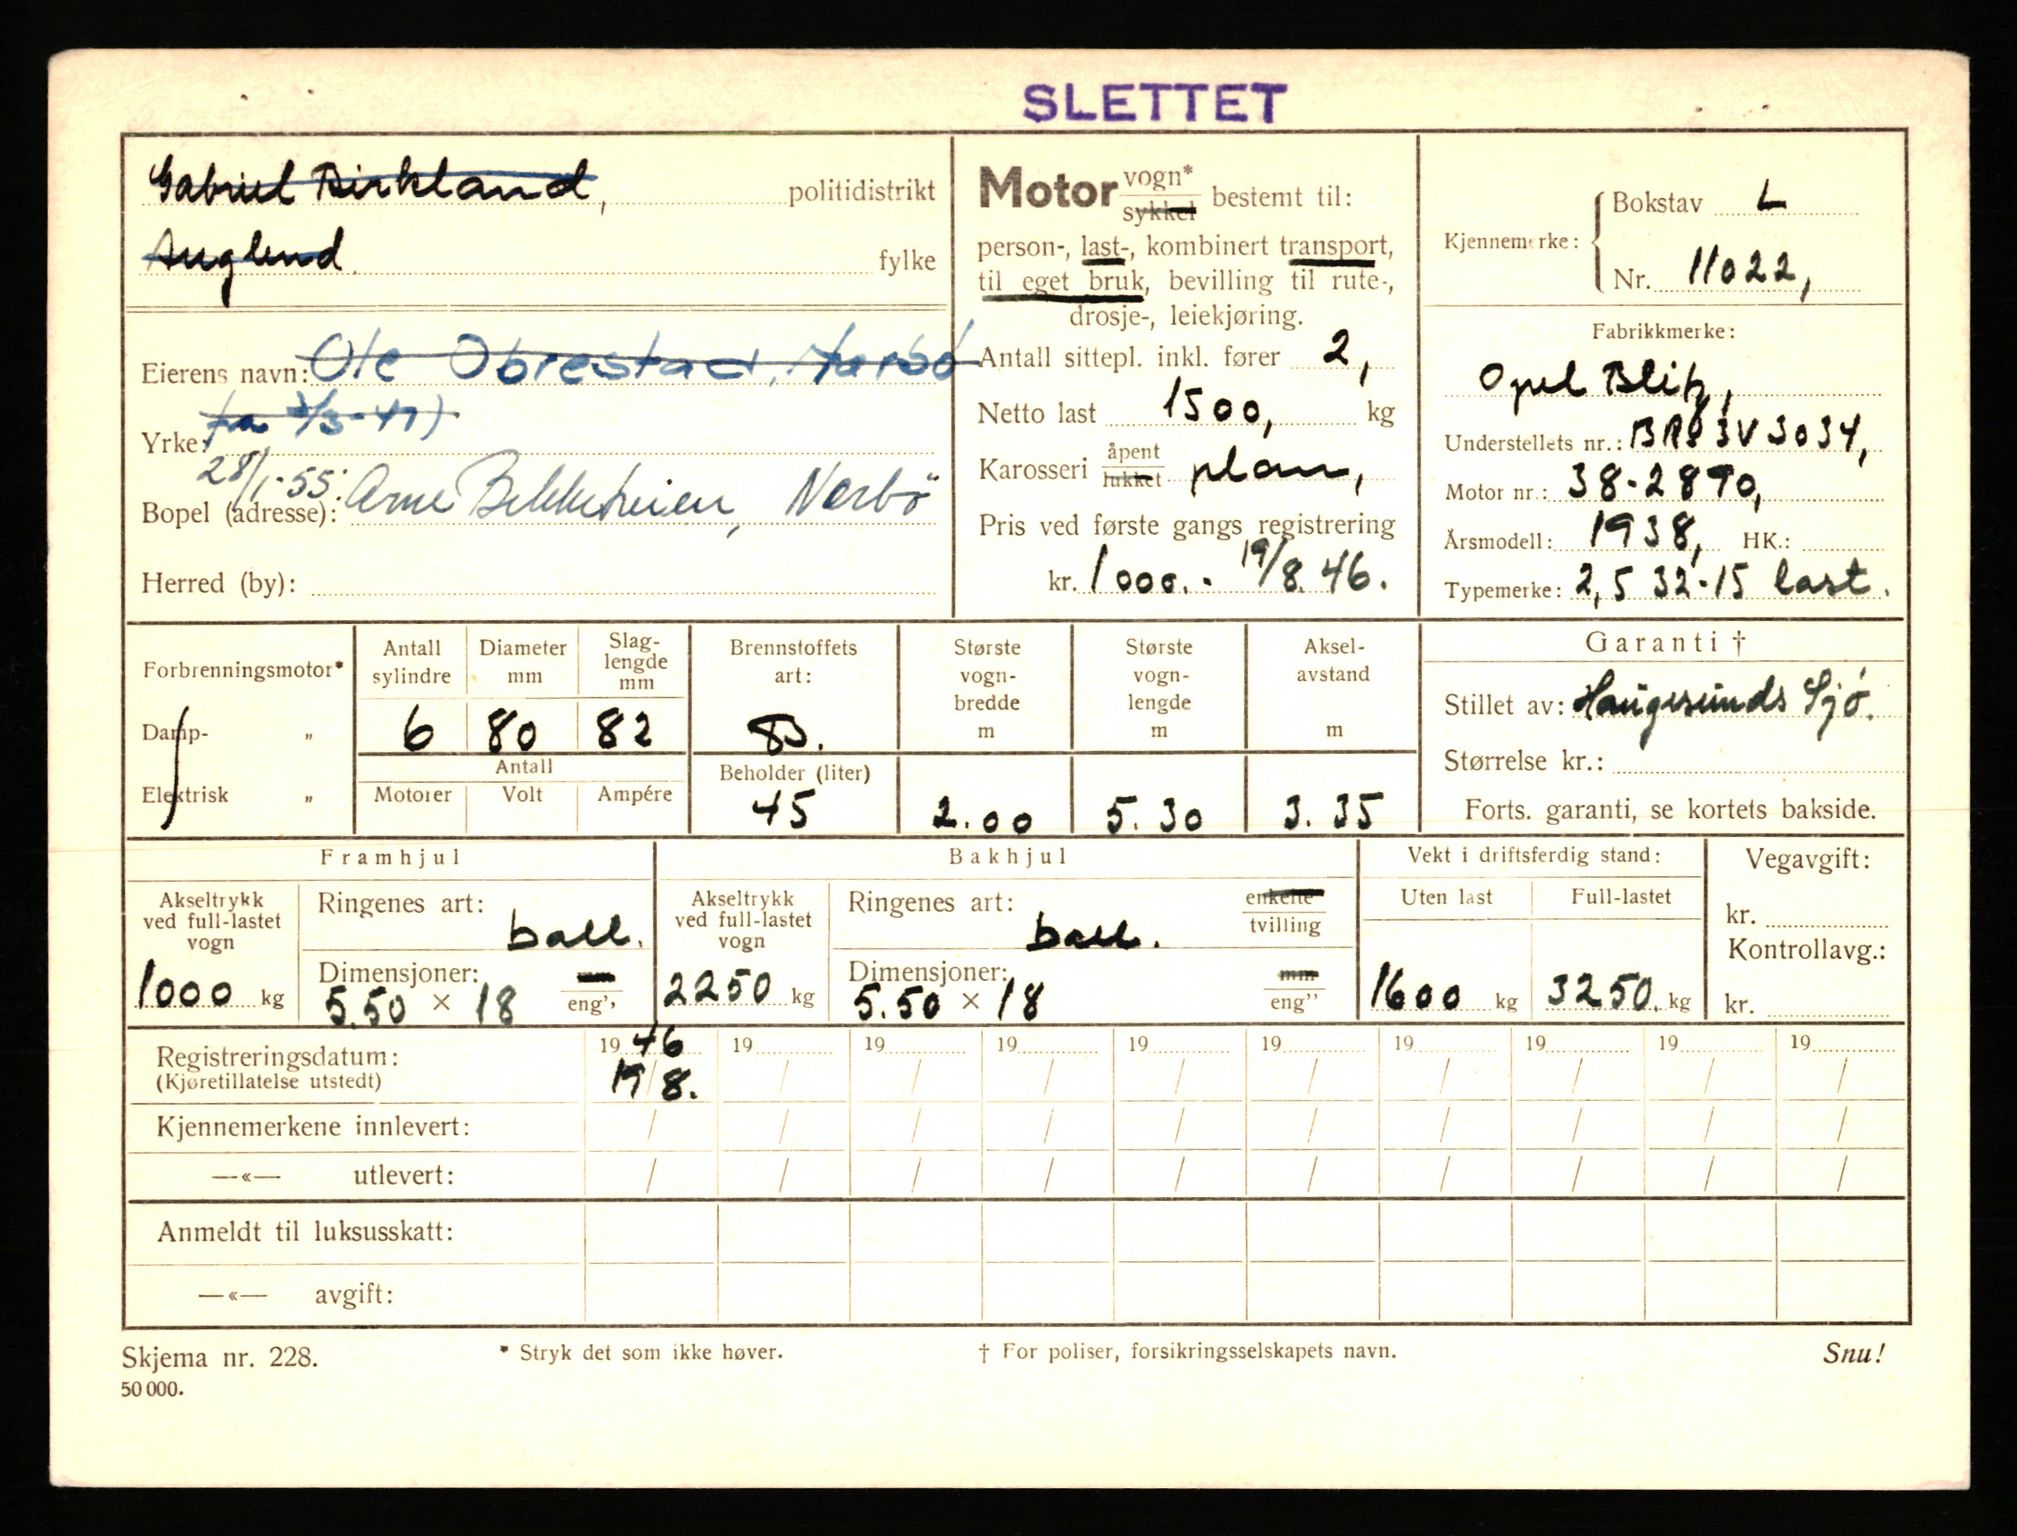 SLETTET
Gabriel Birkland, politidistrikt
Auglend fylke
Eierens navn: Ole Obrestad, Nærbø
fra 3/3-47)
Yrke:
28/1-55:
Bopel (adresse): Arne Bekkeheien, Nærbø
Herred (by):
Motor vogn* sykkel bestemt til:
person-, last-, kombinert transport,
til eget bruk, bevilling til rute-,
drosje-, leiekjøring.
Antall sittepl. inkl. fører 2,
Netto last 1500, kg
Karosseri åpent lukket plan,
Pris ved første gangs registrering
kr. 1000.- 19/8.46.
Kjennemerke: Bokstav L
Nr. 11022,
Fabrikkmerke:
Opel Blitz,
Understellets nr.: 3V3034,
Motor nr.: 38-2890,
Årsmodell: 1938, HK.:
Typemerke: 2,5 32-15 last.
Forbrenningsmotor*
Damp- „
Elektrisk „
Antall sylindre Diameter mm Slag-lengde mm
6 80 82
Antall
Motorer Volt Ampére
Brennstoffets art:
B.
Beholder (liter)
45
Største vogn-bredde m
2.00
Største vogn-lengde m
5.30
Aksel-avstand m
3.35
Garanti †
Stillet av: Haugesunds Sjø.
Størrelse kr.:
Forts. garanti, se kortets bakside.
Framhjul
Akseltrykk ved full-lastet vogn
1000 kg
Ringenes art: ball.
Dimensjoner: mm
5.50 × 18 eng''
Bakhjul
Akseltrykk ved full-lastet vogn
2250 kg
Ringenes art: enkelte
ball. tvilling
Dimensjoner: mm
5.50 × 18 eng''
Vekt i driftsferdig stand:
Uten last Full-lastet
1600 kg 3250. kg
Vegavgift:
kr.
Kontrollavg.:
kr.
Registreringsdatum: 19 46 19 19 19 19 19 19 19 19 19
(Kjøretillatelse utstedt) 19/8. / / / / / / / / /
Kjennemerkene innlevert: / / / / / / / / / /
—«— utlevert: / / / / / / / / / /
Anmeldt til luksusskatt:
—«— avgift:
Skjema nr. 228. * Stryk det som ikke høver. † For poliser, forsikringsselskapets navn. Snu!
50 000.